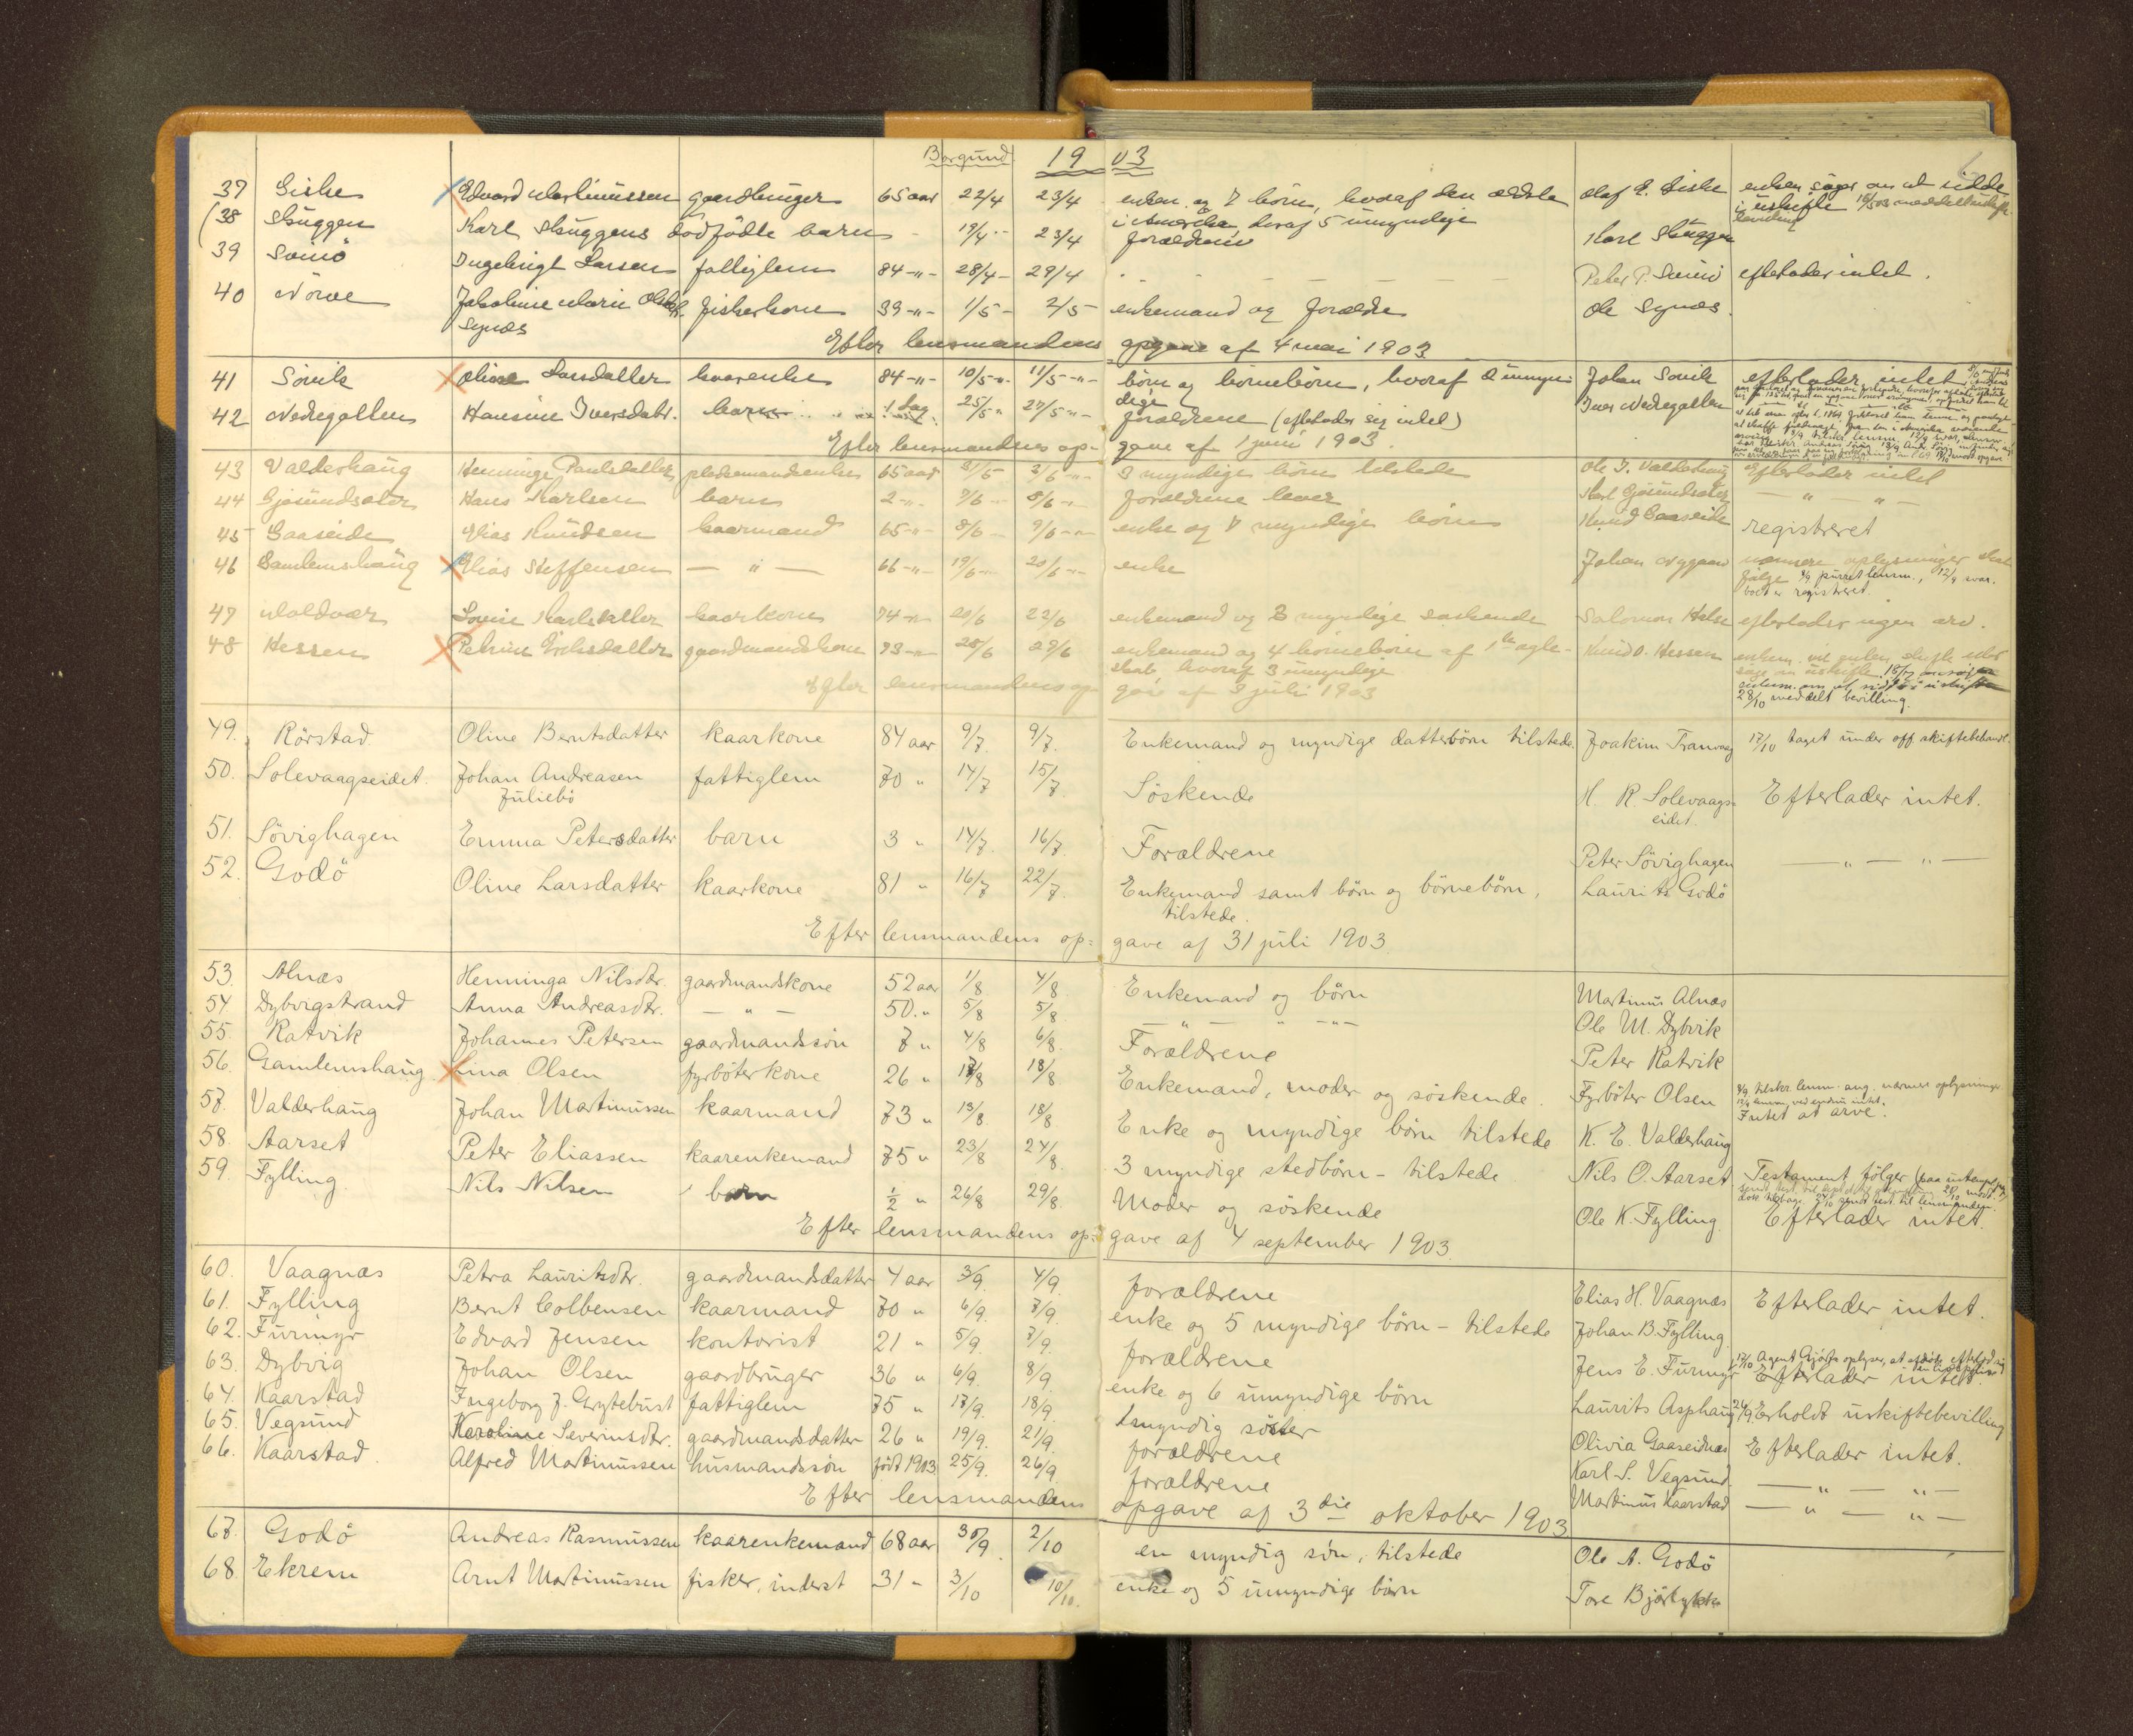 Borgund 19 03
37 Giske Edvard Martinussen gaardbruger 65 aar 22/4 23/4 enken og 7 börn, hvoraf den ældste Olaf E. Giske enken söger om at sidde
i Amerika, deraf 5 umyndige i uskifte
(38 Skuggen Karl Skuggens dödfödte barn - 19/4 - 23/4 forældrene Karl Skuggen
39 Sæviö Ingebrigt Larsen fattiglem 84 -"- 28/4 - 29/4 - Peter P. efterlader intet.
40 Nörve Jakobine Marie Olsdtr. fiskerkone 39 -"- 1/5 - 2/5 - enkemand og forældre Ole Synæs.
Synæs
Efter lensmandens opgave af 4 mai 1903
41 Sövik Larsdatter kaarenke 84 -"- 10/5 -"- 11/5 -"- börn og börnebörn, hvoraf 2 umyn- Johan Sövik efterlader intet
dige
42 Nedregotten Hansine Iversdatr. barn 1 dag 25/5 " 27/5 -"- forældrene (efterlader sig intet) Iver Nedregotten
Efter lensmandens op- gave af 1 juni 1903.
43 Valderhaug Henninge Paulsdatter pladsemandsenke 65 aar 31/5 3/6 -"- 3 myndige börn tilstede Ole J. Valderhaug Efterlader intet
44 Gjösundsæter Hans Karlsen barn 2 -"- 7/6 8/6 -"- forældrene lever Karl Gjösundsæter — " — " —
45 Gaaseide Elias Knudsen kaarmand 65 -"- 8/6 - 9/6 -"- enke og 7 myndige börn Knud Gaaseide registreret
46 Gamlemshaug Elias Steffensen — " — 66 -"- 19/6 -"- 20/6 -"- enke Johan Nygaard nærmere oplysninger skal
fölge 4/9 purret lensm., 12/9 svar.
boet er registreret.
47 Moldvær Lovise Karlsdatter kaarkone 74 -"- 20/6 22/6 enkemand og 3 myndige Salomon efterlader ingen arv.
48 Hessen Petrine Eriksdatter gaardmandskone 73 -"- 28/6 29/6 enkemand og 4 börnebörn af 1ste ægte- Knud O. Hessen
skab, hvoraf 3 umyndige
28/10 meddelt bevilling.
Efter lensmandens op- gave af 3 juli 1903
49. Rörstad Oline Berntsdatter kaarkone 84 aar 9/7. 9/7. Enkemand og myndige datterbörn tilstede. Joakim Tranvaag 17/10 taget under off skiftebehandl.
50. Solevaagseidet. Johan Andreasen fattiglem 70 " 14/7 15/7. Söskende H. R. Solevaags- Efterlader intet.
Juliebö eidet.
51. Sövighagen Emma Petersdatter barn 3 " 14/7. 16/7. Forældrene Peter Sövighagen — " — " —
52. Godö Oline Larsdatter kaarkone 81 " 16/7 22/7. Enkemand samt börn og börnebörn, Laurits Godö
tilstede.
Efter lensmandens op= gave af 31 juli 1903.
53. Alnæs Henninga Nilsdtr. gaardmandskone 52 aar 1/8 4/8. Enkemand og börn Martinus Alnæs
54. Dybvigstrand Anna Andreasdtr. — " — 50. " 5/8 5/8. — " — " — " — Ole M. Dybvik
55. Ratvik Johannes Petersen gaardmandssön 7 " 4/8 6/8. Forældrene Peter Ratvik
56. Gamlemshaug Lina Olsen fyrböterkone 26 " 17/8 18/8 Enkemand, moder og söskende. Fyrböter Olsen 4/9 tilskr. lensm. ang. nærmere oplysninger
Intet at arve.
57. Valderhaug Johan Martinussen kaarmand 73 " 13/8. 18/8. Enke og myndige börn tilstede K. E. Valderhaug
58. Aarset Peter Eliassen kaarenkemand 75 " 23/8 24/8. 3 myndige stedbörn - tilstede Nils O. Aarset Testament fölger
59. Fylling Nils Nilsen barn 1/2 " 26/8 29/8. Moder og söskende Ole K. Fylling. Efterlader intet.
Efter lensmandens op= gave af 4 september 1903.
60. Vaagnæs Petra Lauritsdtr. gaardmandsdatter 4 aar 3/9. 4/9. forældrene Elias H. Vaagnæs Efterlader intet.
61. Fylling Bernt Colbensen kaarmand 70 " 6/9. 7/9. enke og 5 myndige börn - tilstede Johan B. Fylling
62. Furmyr Edvard Jensen kontorist 21 " 5/9. 7/9. forældrene Jens E. Furmyr Efterlader intet.
63. Dybvig Johan Olsen gaardbruger 36 " 6/9. 8/9. enke og 6 umyndige börn Laurits Asphaug 24/9. Erholdt uskiftebevilling
64. Kaarstad Ingeborg J. Grytebust fattiglem 75 " 17/9. 18/9. 1 myndig söster Olivia Gaaseidnæs Efterlader intet.
65. Vegsund Karoline Severinsdtr. gaardmandsdatter 26 " 19/9. 21/9. forældrene Karl S. Vegsund — " — " —
66. Kaarstad. Alfred Martinussen husmandssön födt 1903 25/9. 26/9. forældrene Martinus Kaarstad — " — " —
Efter lensmandens opgave af 3die oktober 1903
67. Godö Andreas Rasmussen kaarenkemand 68 aar 30/9. 2/10 en myndig sön, tilstede Ole A. Godö
68 Ekrem Arnt Martinussen fisker, inderst 31 " 3/10 10/10. enke og 5 umyndige börn Tore